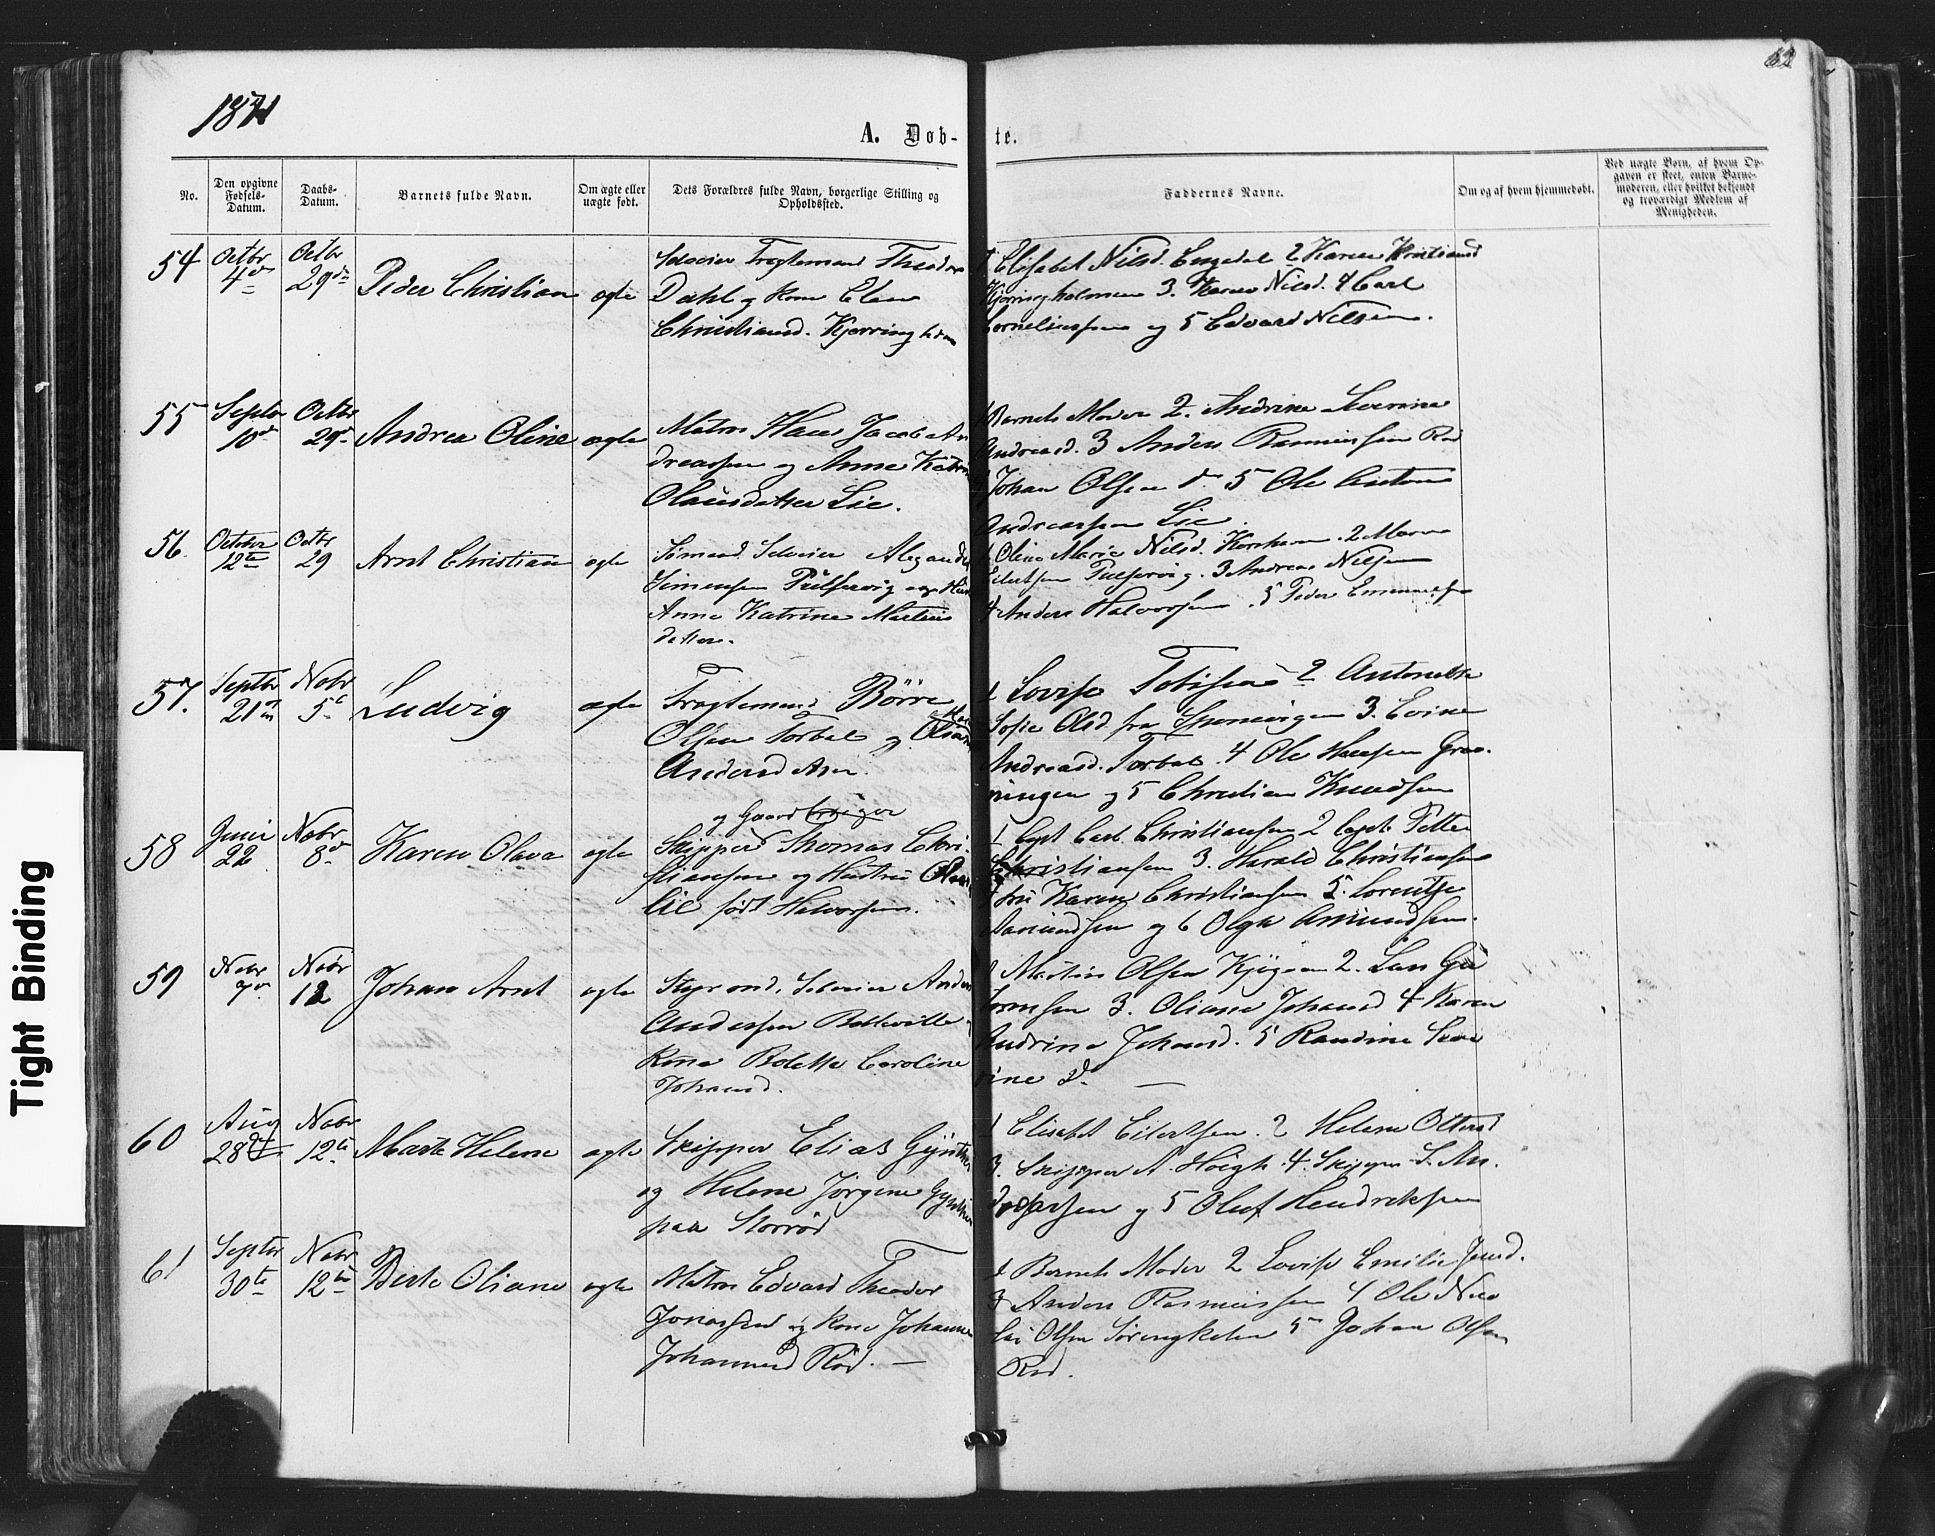 1871
62
A. Døb-
te.
No.
Den opgivne Fødsels-Datum.
Daabs-Datum.
Barnets fulde Navn.
Om ægte eller uægte født.
Dets Forældres fulde Navn, borgerlige Stilling og Opholdssted.
Faddernes Navne.
Om og af hvem hjemmedøbt.
Ved uægte Børn, af hvem Opgaven er skeet, enten Barnemoderen, eller hvilket bekjendt og troværdigt Medlem af Menigheden.
54 Octbr 4de Octbr 29de Peder Christian ægte
Selveier Fragtemand Theodor
Dahl og Kone Elen
Christiansd. Kjerringholmen
1 Elisabet Nilsd. Engedal 2 Karen Kristiansd
Kjerringholmen 3. Karen Nilsd. 4 Carl
Corneliussen og 5 Edvard Nilsen.
55 Septbr 10de Octbr 29de Andrea Oline ægte
Matros Hans Jacob An
dreassen og Anne Katrine
Olausdatter Lie.
1 Barnets Moder 2. Andrine Severine
Andreasd. 3 Anders Rasmussen Rød
4 Johan Olsen do 5 Ole Anton
Andreassen Lie
56. October 12te Octbr 29 Arnt Christian ægte
Sømand Selveier Alexander
Simensen Pulservig og Hustru
Anne Katrine Martins
datter.
1 Oline Marie Nilsd. 2 Maren
Eilertsen Pulservig. 3 Andreas Nilsen
4 Anders Halvorsen. 5 Peder
57. Septbr 21de Nobr 5te Ludvig ægte
Fragtemand Børre
Olsen Torbal og
Andersdatter.
1 Lovise Tobisen 2 Antonette
Sofie Olsd. fra 3. Evine
Andreasd. Torbal. 4 Ole Hansen Grøn-
ningen og 5 Christian Knudsen
58 Juni 22 Nobr 8de Karen Olava ægte
og Gaard
Skipper Thomas Chri-
stiansen og Hustru
lie født Halvorsen.
1 Capt Carl Christiansen 2 Capt. Petter
Christiansen 3. Harald Christiansen
4 Fru Karen Christiansen 5. Lorentze
Amundsen og 6 Olga Amundsen.
59 Nobr Nobr 12 Johan Arnt ægte
Styrmd. Selveier Anders
Andersen
Kone Bolette Caroline
Johansd.
1 Martin Olsen 2. Lars Gu
lormsen 3. Oliane Johansd 4 Karen
Andrine Johansd. 5 Randine Seve
rine do —
60 Aug 28de Nobr 12te Marte Helene ægte
Skipper Elias Gjüntner
og Helene Jørgine
paa Storrød
1 Elisabet Eilertsen. 2 Helene Ottersd
3. Skipper A. Høigh. 4. Skipper S. An-
dreassen og 5 Oluf Hendriksen
61 Septbr 30te Nobr 12te Berte Oliane ægte
Matros Edvard Theodor
Jonassen og Kone Johanne
Johannesd Rød. —
1 Barnets Moder 2 Lovise Emilie Jensd.
3 Anders Rasmussen 4 Ole Nico
lai Olsen 5 Johan Olsen
Rød.
Tight Binding